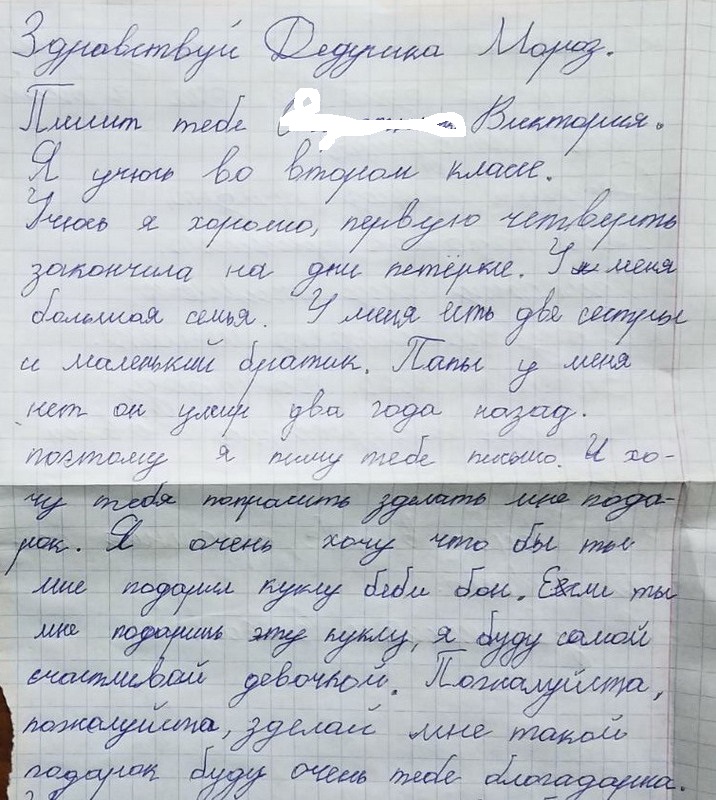 Здравствуй Дедушка Мороз.
Пишит тебе Виктория.
Я учюсь во втором класе.
Учюсь я хорошо, первую четверть
закончила на дни петёрки. У меня
большая семья. У меня есть две сестры
и маленький братик. Папы у меня
нет он умир два года назад.
поэтому я пишу тебе письмо. И хо-
чу тебя попрасить зделать мне пода-
рок. Я очень хочу что бы ты
мне подарил куклу беби бон. Если ты
мне подаришь эту куклу, я буду самой
счастливай девочкой. Пожалуйста,
пожалуйста, зделай мне такой
подарок буду очень тебе благадарна.